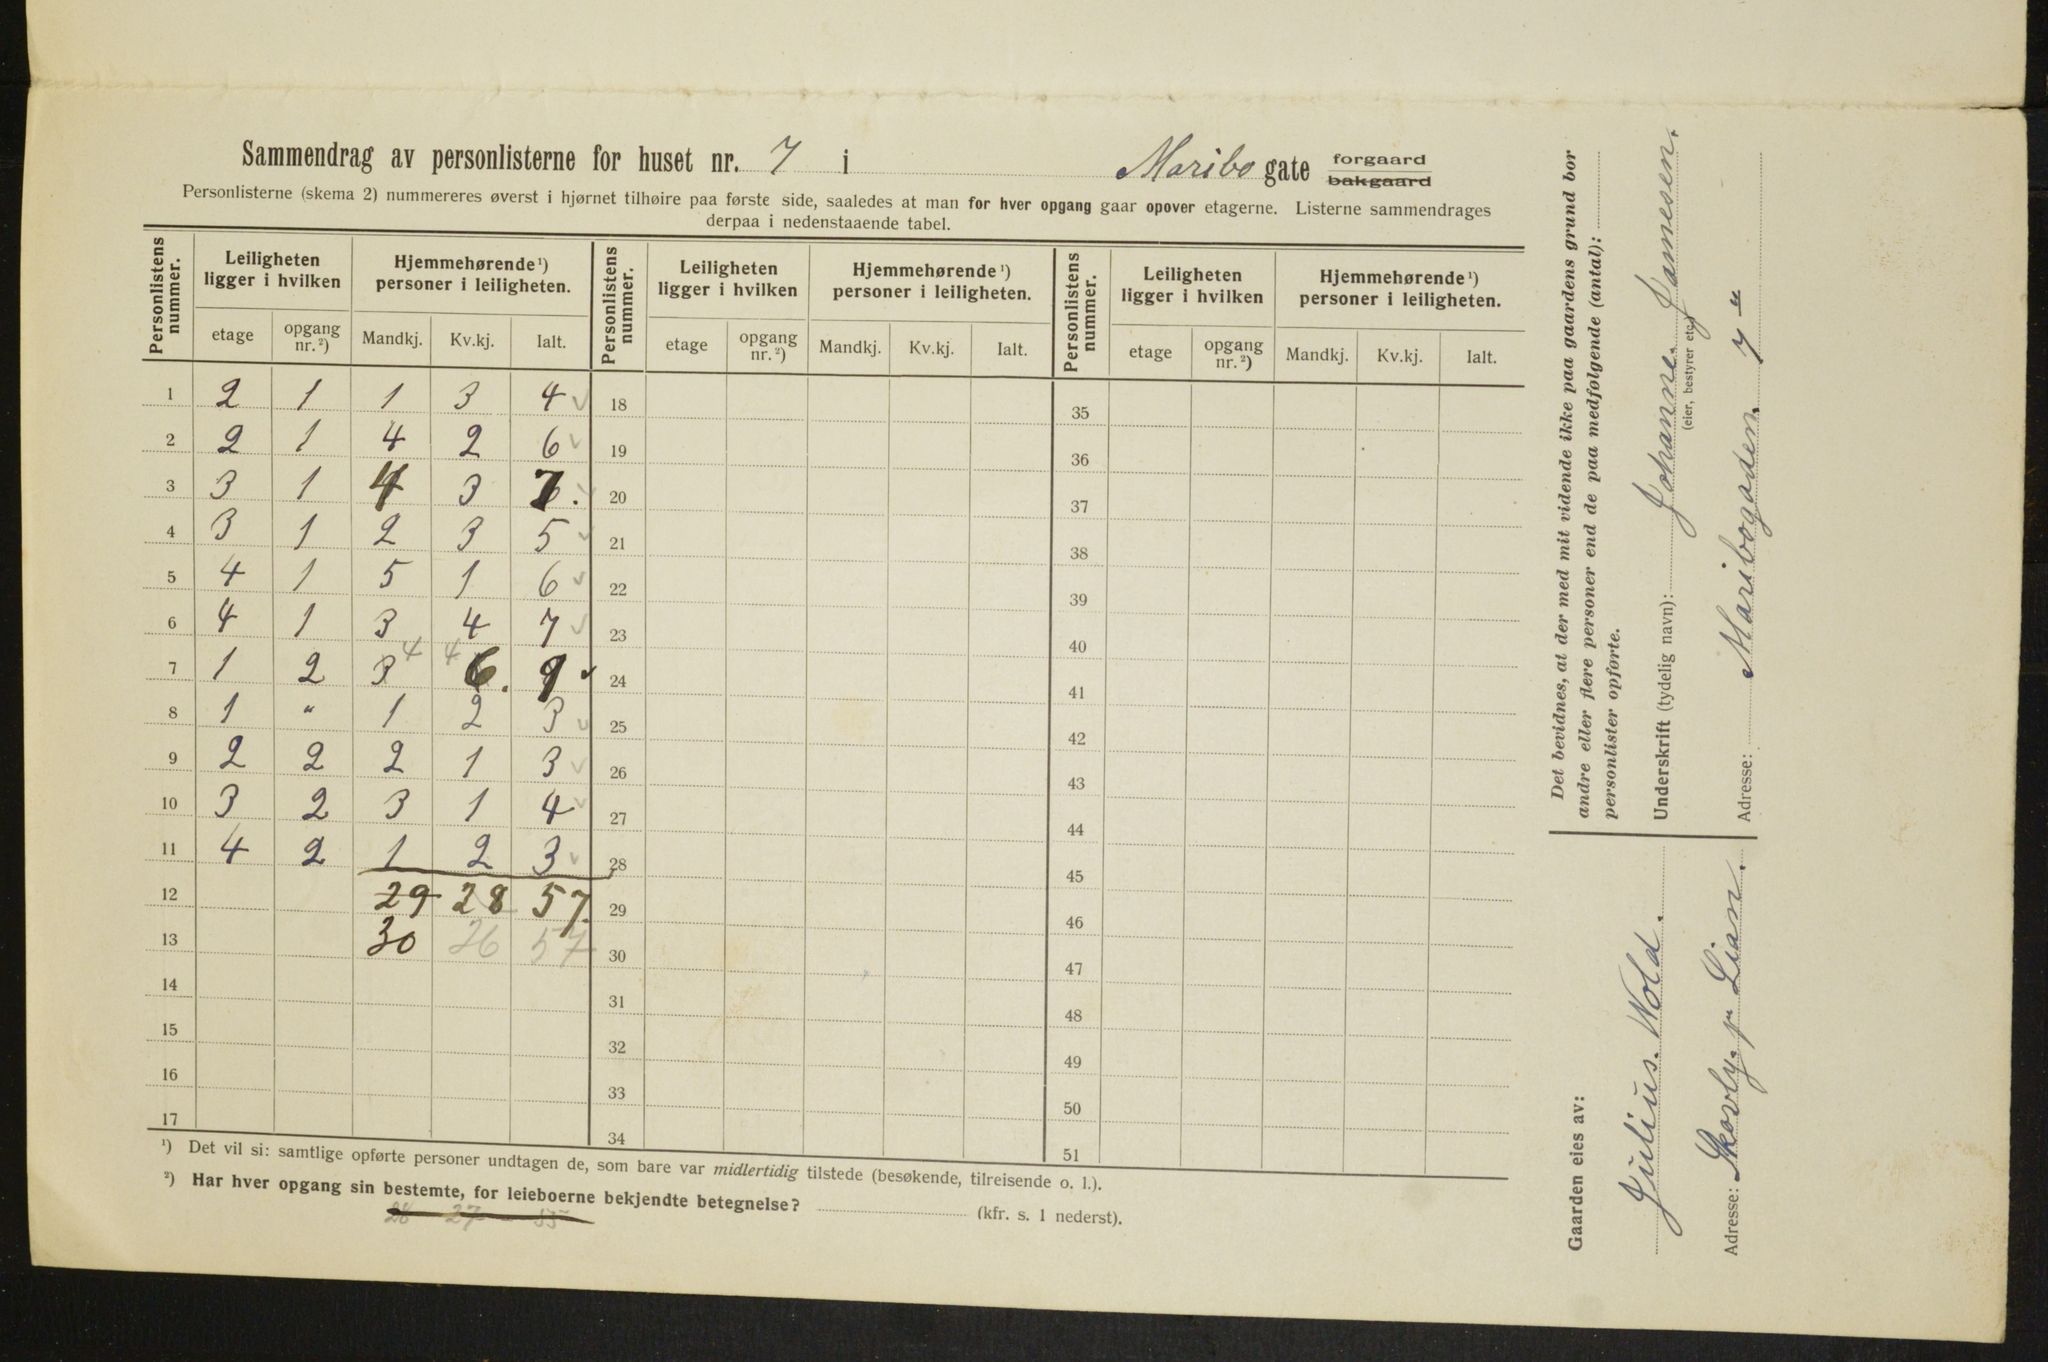 Sammendrag av personlisterne for huset nr. 7 i Maribo gate forgaard bakgaard
Personlisterne (skema 2) nummereres øverst i hjørnet tilhøire paa første side, saaledes at man for hver opgang gaar opover etagerne. Listerne sammendrages
derpaa i nedenstaaende tabel.
Personlistens nummer. Leiligheten ligger i hvilken Hjemmehørende ¹) personer i leiligheten. Personlistens nummer. Leiligheten ligger i hvilken Hjemmehørende ¹) personer i leiligheten. Personlistens nummer. Leiligheten ligger i hvilken Hjemmehørende ¹) personer i leiligheten.
etage opgang nr. ²) Mandkj. Kv.kj. Ialt. etage opgang nr. ²) Mandkj. Kv.kj. Ialt. etage opgang nr. ²) Mandkj. Kv.kj. Ialt.
1 2 1 1 3 4 18 35
2 2 1 4 2 6 19 36
3 3 1 4 3 7. 20 37
4 3 1 2 3 5 21 38
5 4 1 5 1 6 22 39
6 4 1 3 4 7 23 40
7 1 2 3 4 4 6. 9 24 41
8 1 " 1 2 3 25 42
9 2 2 2 1 3 26 43
10 3 2 3 1 4 27 44
11 4 2 1 2 3 28 45
12 29 28 57. 29 46
13 30 26 57 30 47
14 31 48
15 32 49
16 33 50
17 34 51
¹) Det vil si: samtlige opførte personer undtagen de, som bare var midlertidig tilstede (besøkende, tilreisende o. l.).
²) Har hver opgang sin bestemte, for leieboerne bekjendte betegnelse? (kfr. s. 1 nederst).
28 27 - 55
Det bevidnes, at der med mit vidende ikke paa gaardens grund bor
andre eller flere personer end de paa medfølgende (antal):
personlister opførte.
Underskrift (tydelig navn): Johanne. Jamesen.
(eier, bestyrer etc.)
Adresse: Maribogaden. 7 "
Gaarden eies av:
Julius. Wold.
Adresse: Skovly. pr Lian.